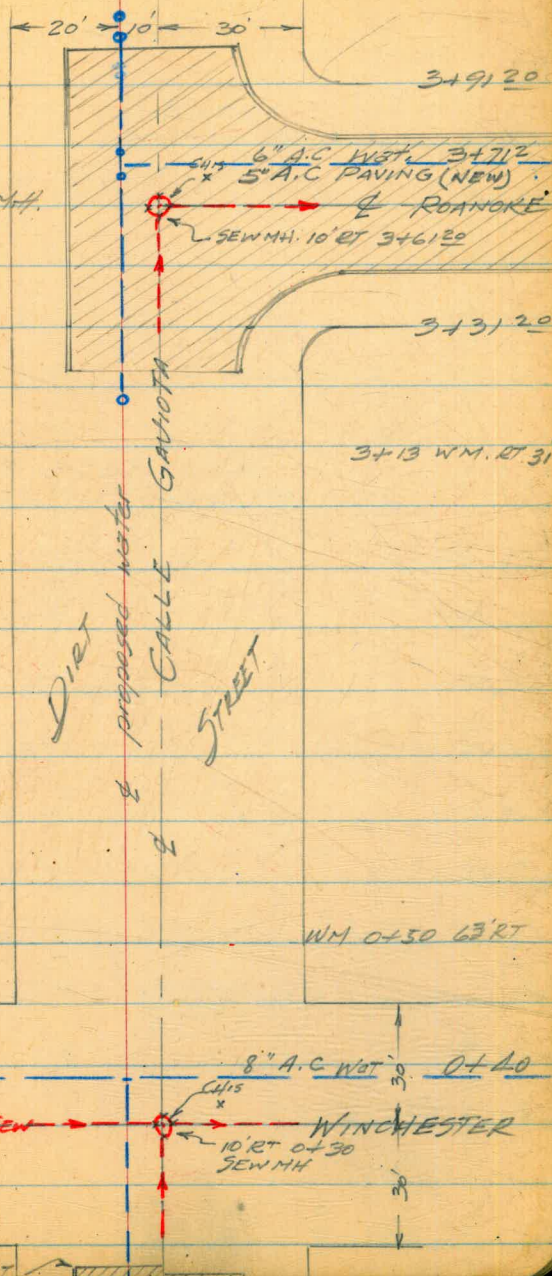 20' 10' 30'
3+91 20
6" A.C Wat. 3+71 2
5" A.C PAVING (NEW)
CHIS
x
M.H.
℄ ROANOKE
SEW MH. 10' RT 3+61 20
3+31 20
3+13 W M. RT 31
℄ proposed water
℄ CALLE GAVIOTA
DIRT
STREET
WM 0+50 63' RT
8" A.C Wat 0+40
30'
CHIS
x
SEW
WINCHESTER
10' RT 0+30
SEW MH
30'